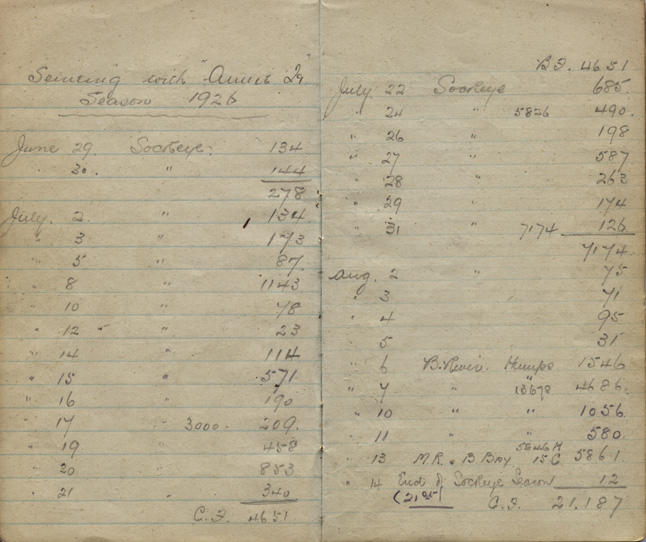 Seining with "Annie 2"
Season 1926
June 29 Sockeye. 134
" 30. " 144
278
July. 2 " 134
" 3 " 173
" 5 " 87
" 8 " 1143
" 10 " 78
" 12 " 23
" 14 " 114
" 15 " 571
" 16 " 190
" 17 " 3000. 209.
" 19 " 458
" 20 " 853
" 21 " 340
C.F. 4651
B.F. 4651
July 22 Sockeye 685.
" 24 " 5826 490.
" 26 " 198
" 27 " 587
" 28 " 263
" 29 " 174
" 31 " 7174 126
7174.
Aug. 2 " 75
" 3 71
" 4 95
" 5 31
" 6 B. River. Humps 1546
" 7 " " 13678 4686.
" 10 " " 1056.
" 11 " " 580.
5846 H
" 13 M.R. & B Bay 15 C 5861
" 14 End of Sockeye Season 12
C.F. 21,187